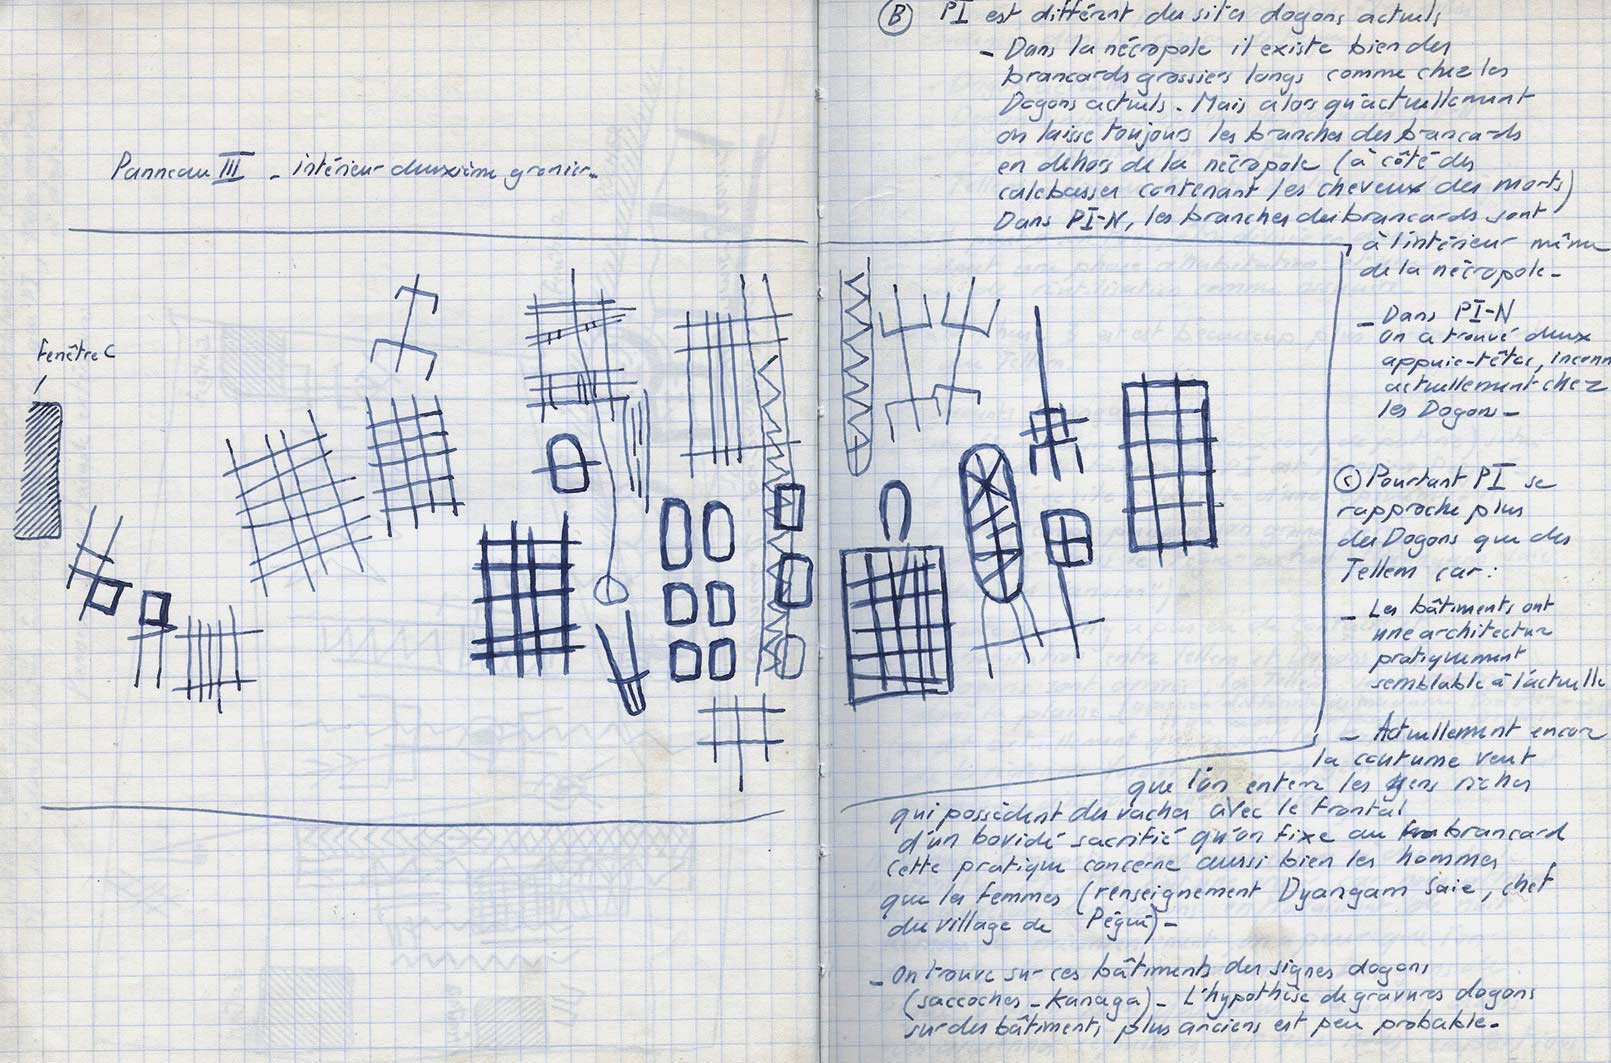 Panneau III - intérieur deuxième grenier.
Fenêtre C
(B) PI est différent des sites dogons actuels
- Dans la nécropole il existe bien des
brancards grossiers longs comme chez les
Dogons actuels. Mais alors qu'actuellement
on laisse toujours les branches des brancards
en dehors de la nécropole (à côté des
calebasses contenant les cheveux des morts)
Dans PI-N, les branches des brancards sont
à l'intérieur même
de la nécropole-
- Dans PI-N
on a trouvé deux
appuie-têtes, inconn
actuellement chez
les Dogon-
(C) Pourtant PI se
rapproche plus
des Dogons que des
Tellem car:
- Les bâtiments ont
une architectur
pratiquement
semblable à l'actuelle
- Actuellement encor
la coutume veut
que l'on enterre les gens riches
qui possèdent des vaches avec le frontal
d'un bovidé sacrifié qu'on fixe au brancard
Cette pratique concerne aussi bien les hommes
que les femmes (renseignement Dyangam Saie, chef
du village de Pégué)-
- On trouve sur ces bâtiments des signes dogons
(saccoches - Kanaga)- L'hypothèse de gravures dogons
sur des bâtiments plus anciens est peu probable-